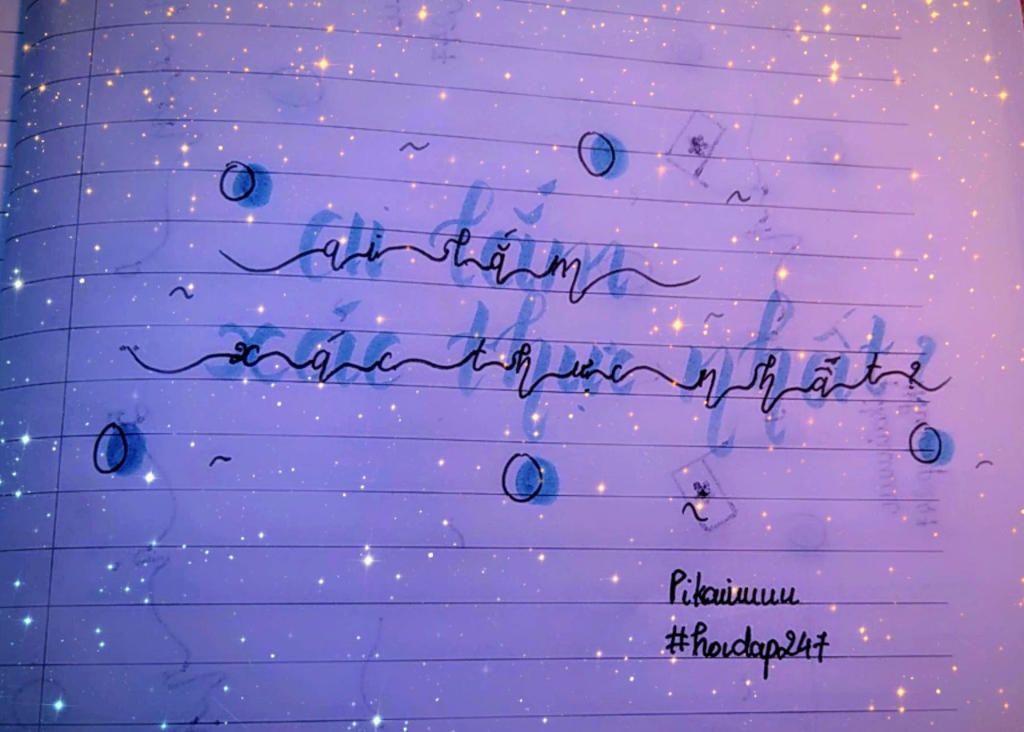 ai tắm
xác thực nhất?
Pikaiuuuu
#hoidap247